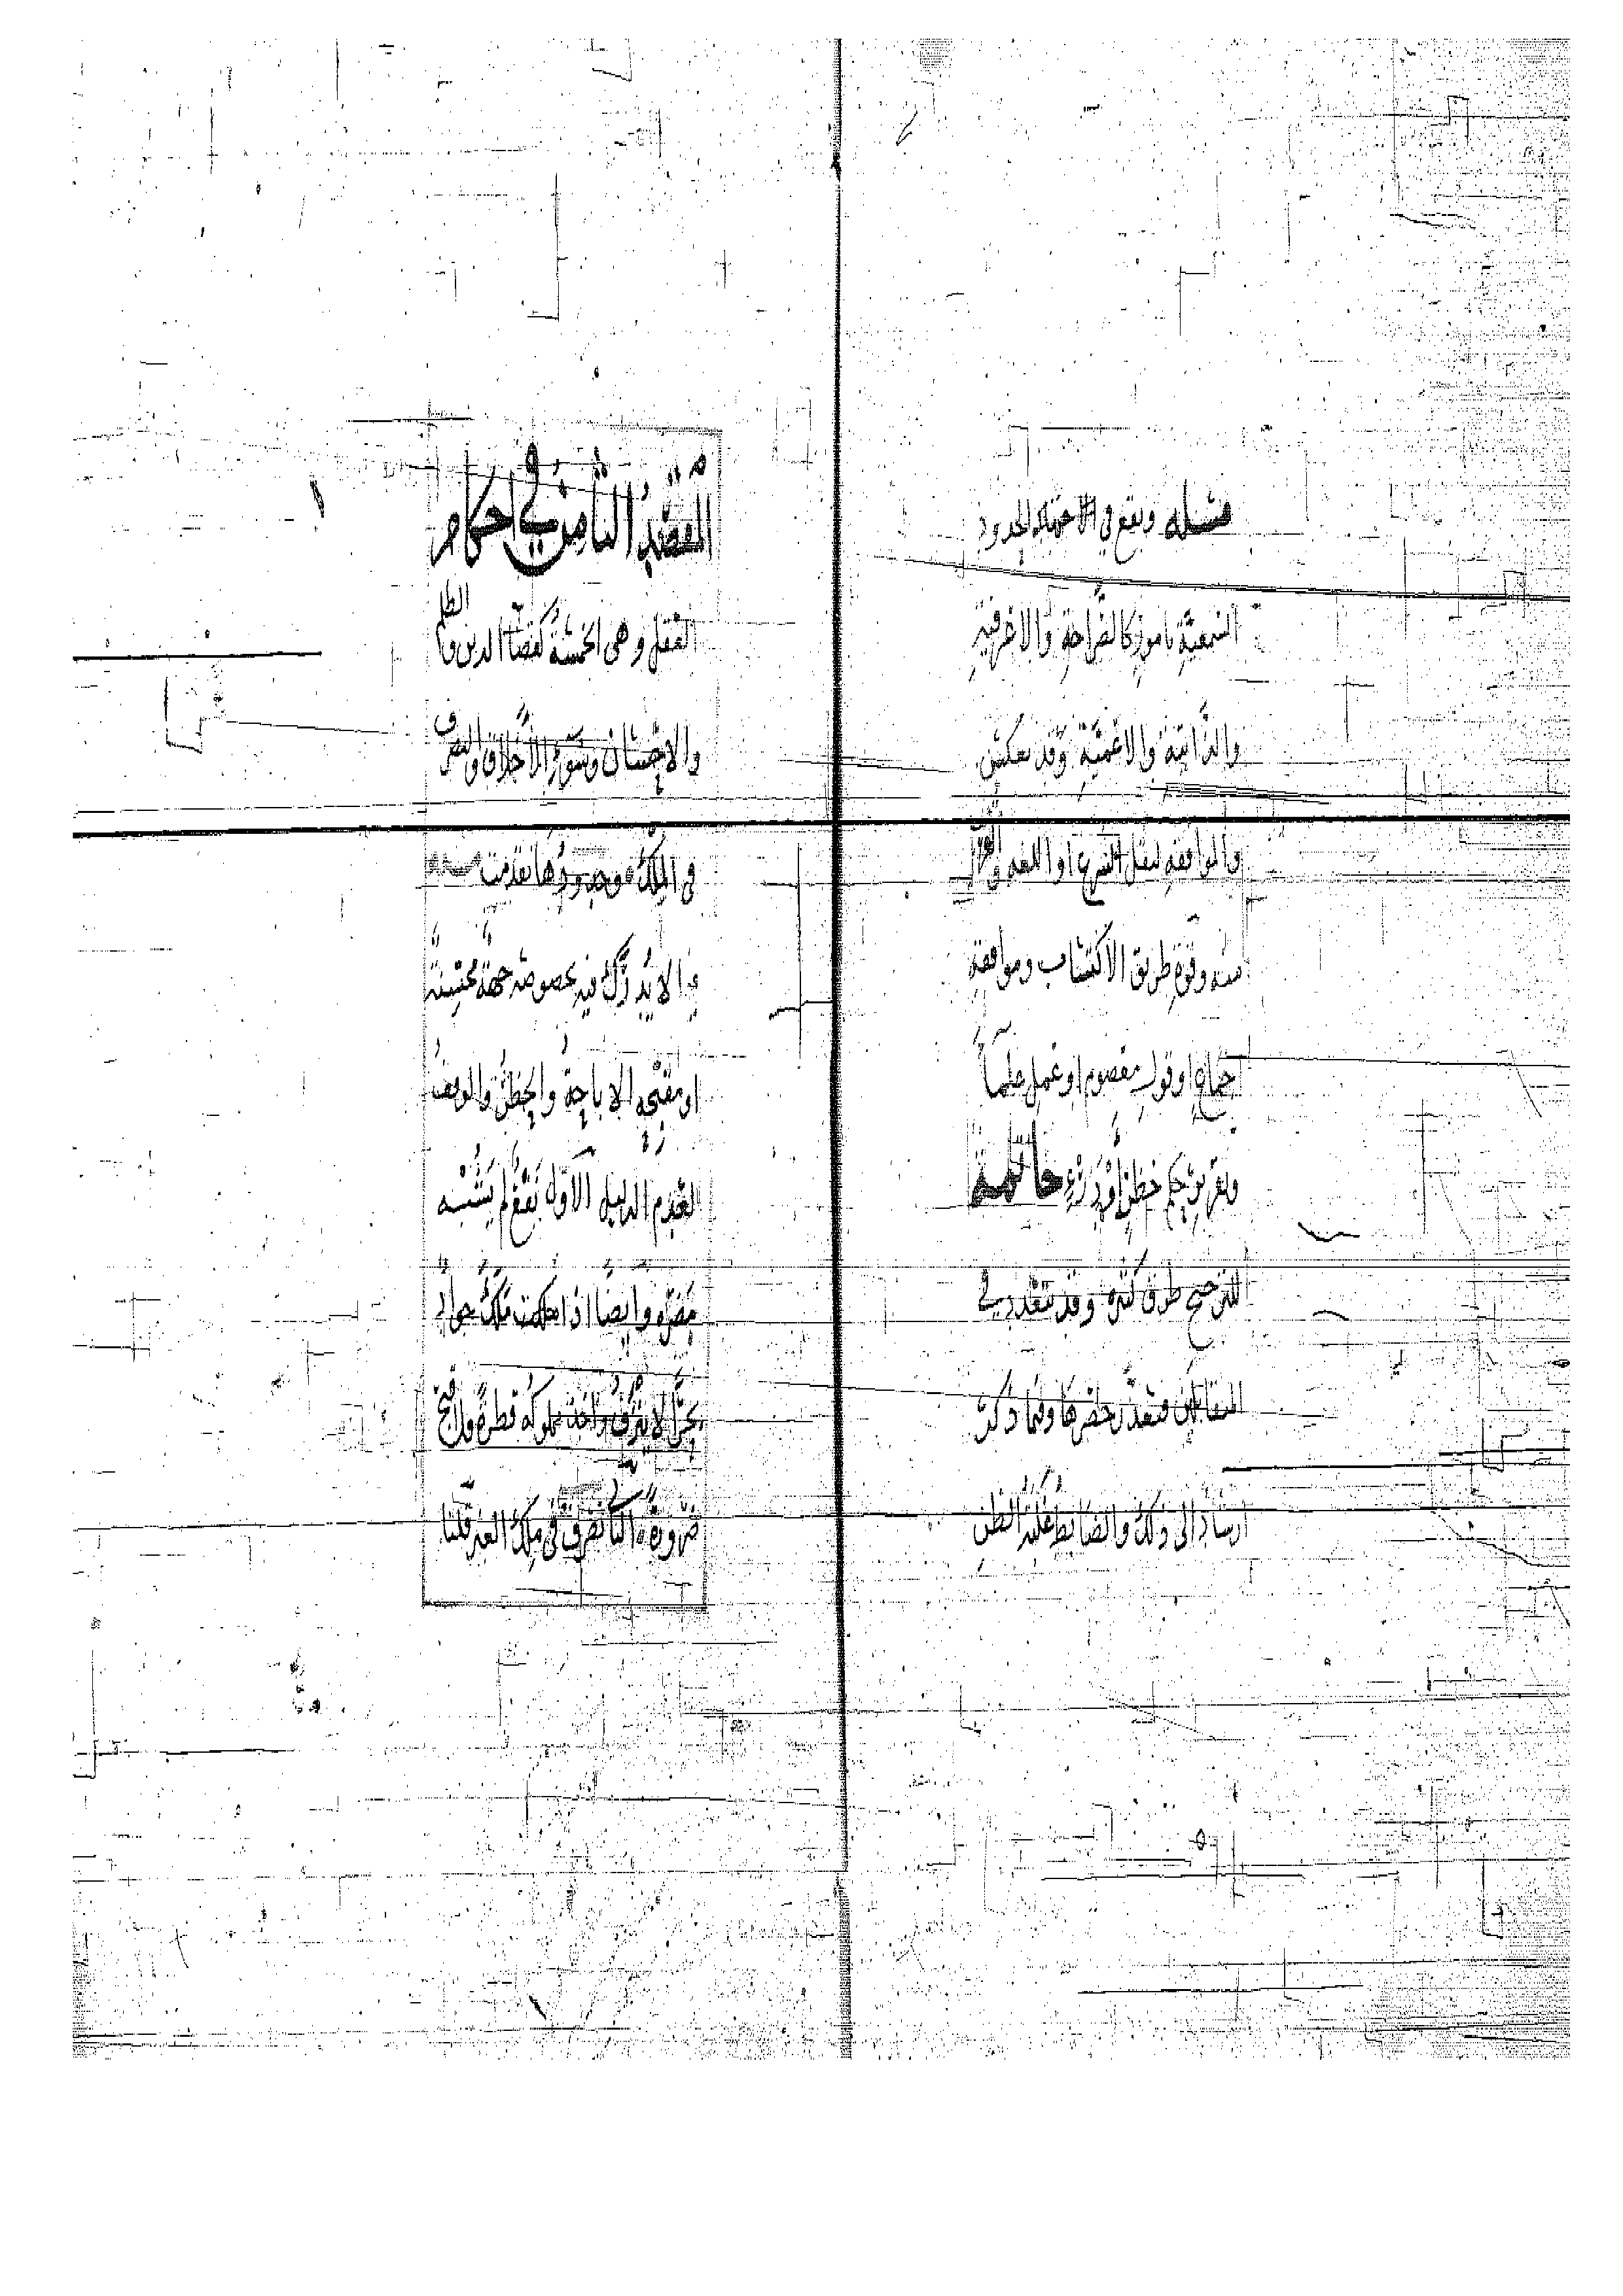 مسئلة ويقع في الاحتمالية الحدود
السمعية بامور كالصراحة والاعرفية
والذاتية والاعمية وقد تعكس
والموافقة لنقل الشرع او اللغه والقرب
منه وقوة طريق الاكتساب وموافقة
اجماع او قول معصوم او عمل علما
وتقرير حكم حظر او درء خاتمة
الترجيح طرق كثيرة وقد تتعدد في
المتقابلين فيتعذر حصرها وفيما ذكر
ارشاد الى ذلك والضابط غلبة الظن
المقصد الثامن في احكام
العقل وهي الخمسة كقضا الدين والظلم
والاحسان وسوء الاخلاق والتصرف
في الملك وحدودها تقدمت
الا يدرك فيه بخصوصه جهة محسنة
او مقبحه الاباحة والحظر والوقف
لعدم الدليل الاول نفع لم يشبه
مضرة وايضا اذا ملك جواد
بحرا لا ينزف واخذ مملوكه قطرة قبح
ضرورة الثاني تصرف في ملك الغير قلنا